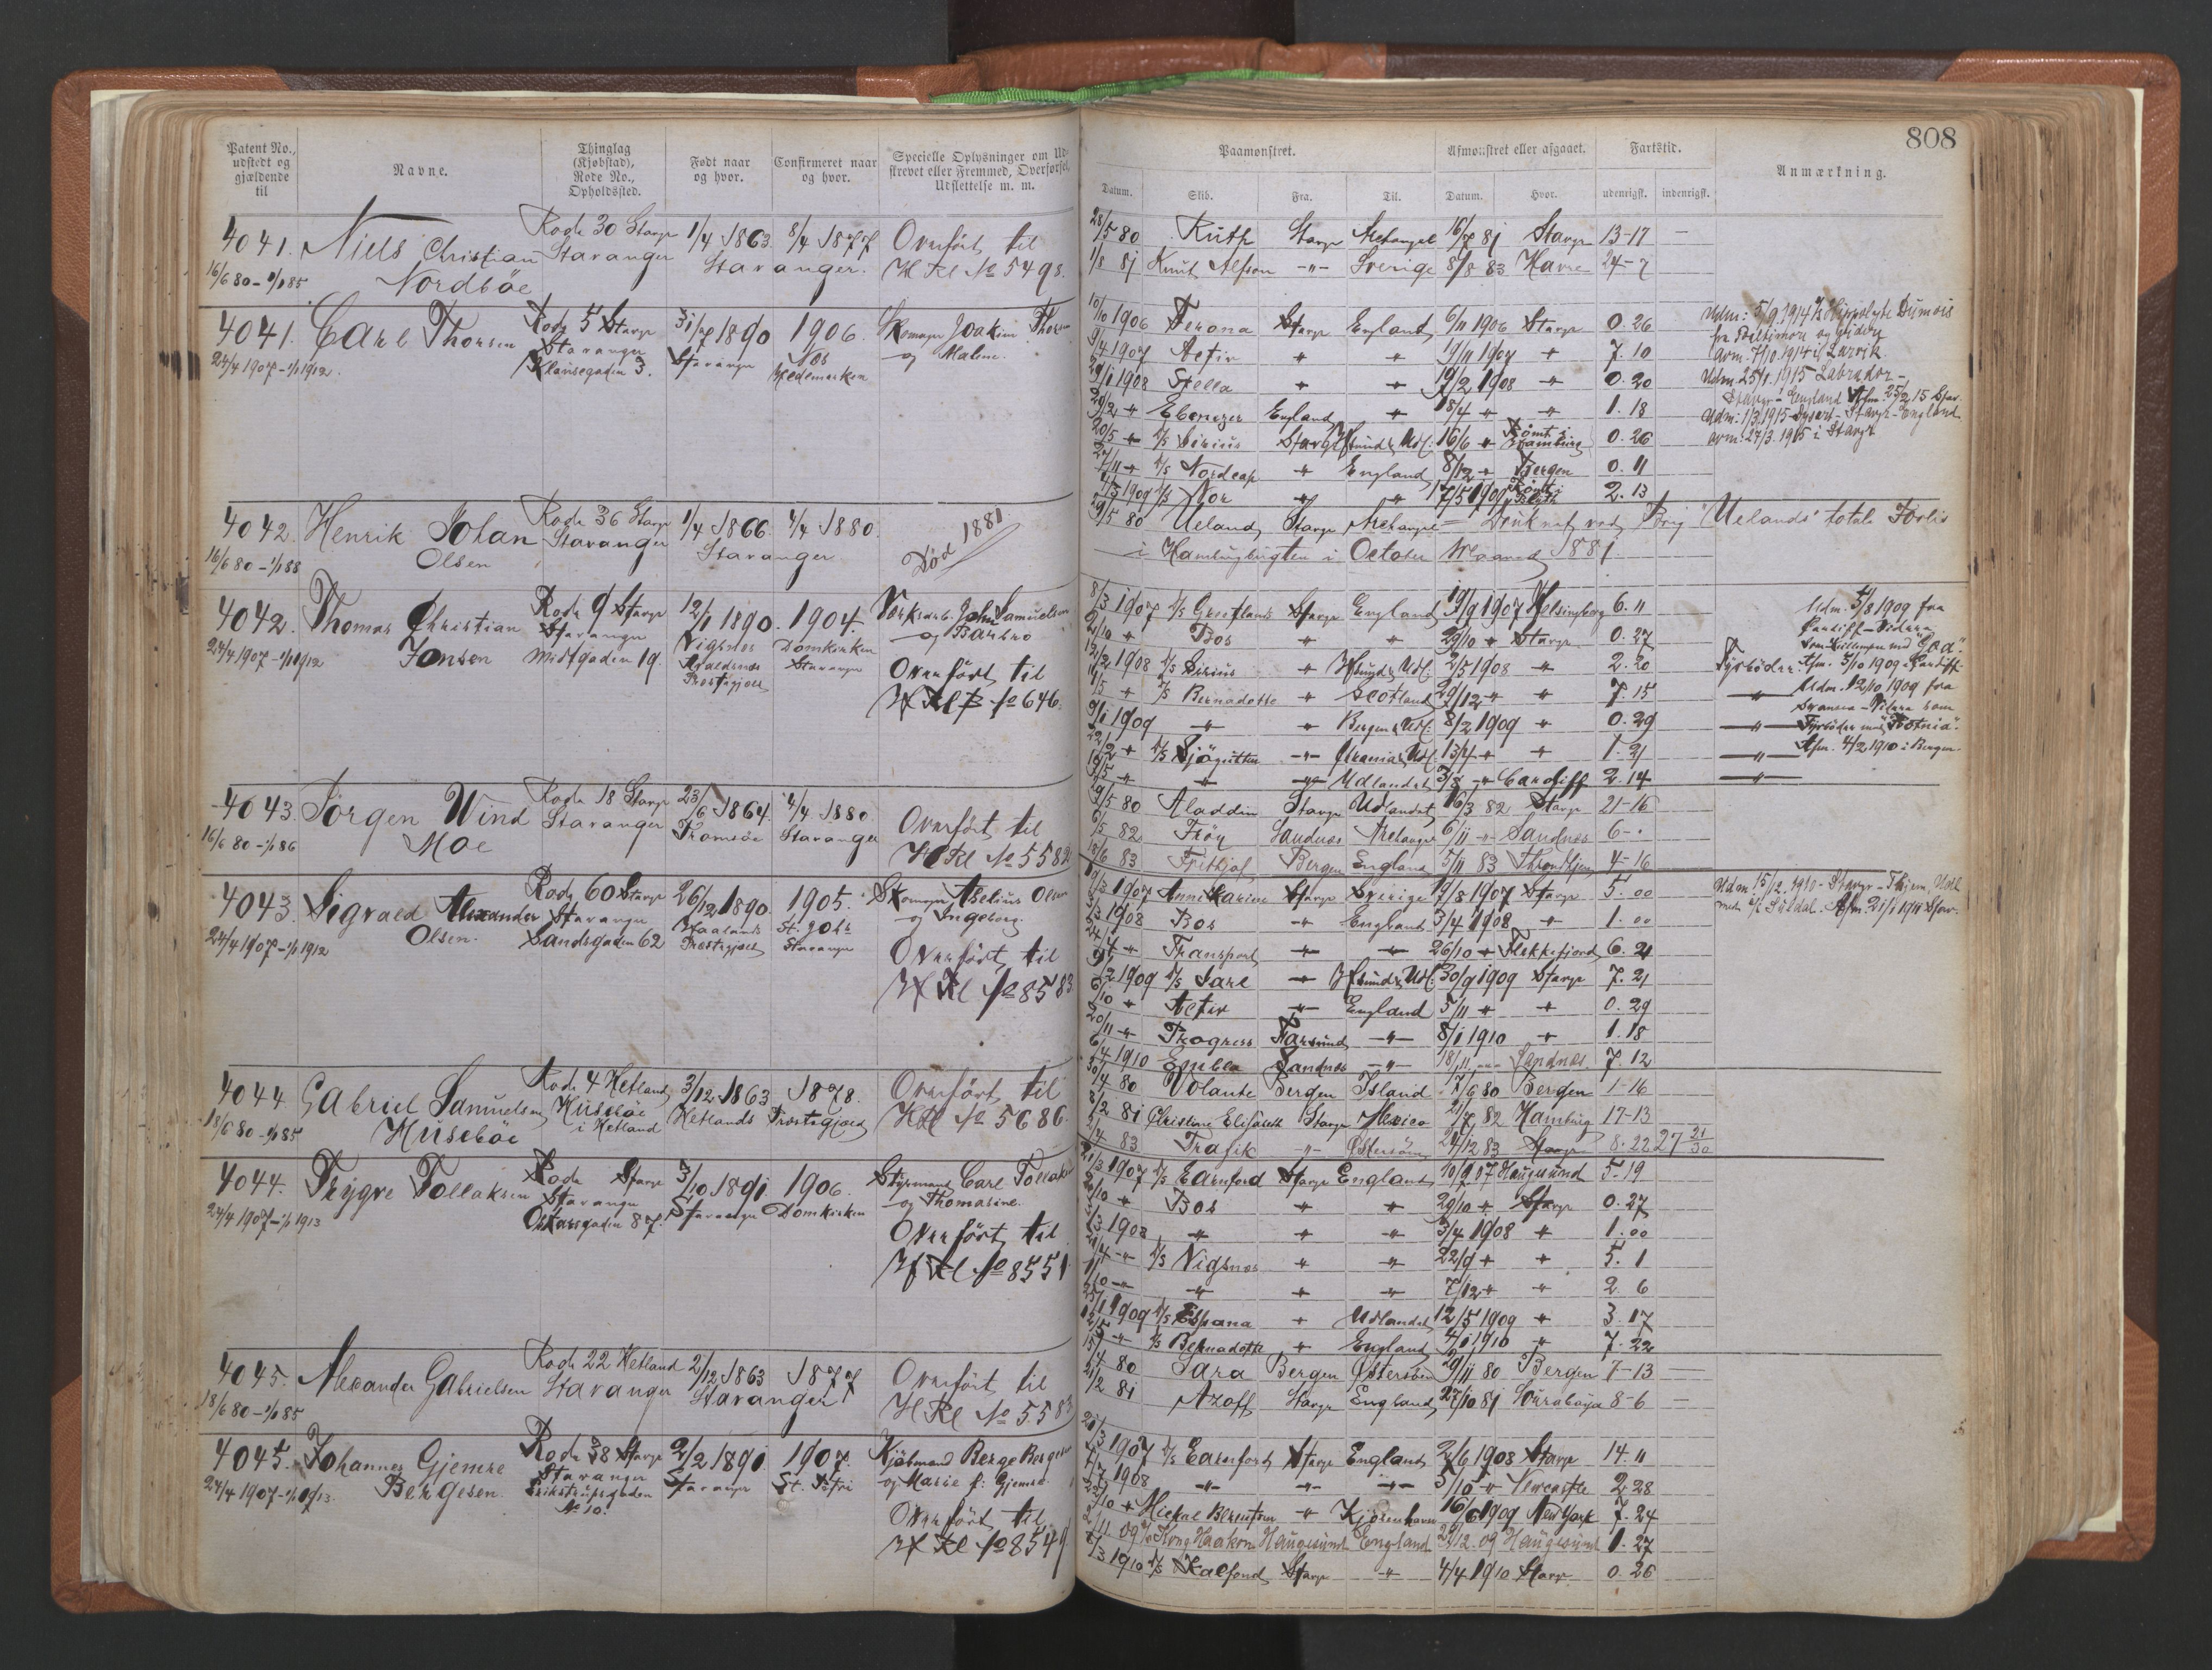 808
Patent No., udstedt og gjældende til
Navne.
Thinglag (Kjøbstad), Rode No., Opholdssted.
Født naar og hvor.
Confirmeret naar og hvor.
Specielle Oplysninger om Udskrevet eller Fremmed, Overførsel, Udslettelse m. m.
Paamønstret.
Afmønstret eller afgaaet.
Fartstid.
Anmærkning.
Datum. Skib. Fra. Til. Datum. Hvor. udenrigsk. indenrigsk.
4041. Niels Christian Nordböe
16/6 80 - 1/1 85
Rode 30 Stavgr Stavanger
1/4 1863. 8/4 1877
Stavanger.
Overført til
H Rl No 5498.
28/5 80 Ruth Stavgr Archangel 16/7 81 Stavgr 13-17 —
1/8 81 Knut Alfson -"- Sverige 8/8 83 Havre 24-7
4041. Carl Thorsen
24/4 1907 - 1/1 1912.
Rode 5 Stavgr
Stavanger
31/7 1890 Stavanger
1906. Nes Hedemarken
Skomager Joakim Thorsen og Malene.
10/10 1906 Verona Stavgr England 6/11 1906 Stavgr 0.26
9/4 1907 Activ " " 19/11 1907 " 7.10
29/1 1908 Stella " " 19/2 1908 " 0.20
29/2 " Ebenezer England " 18/4 " " 1.18
20/5 " D/S Sirius Stavgr 16/6 " Rømt i Hamburg 0.26
27/11 " D/S Nordcap " England 8/12 " Bergen 0.11
4/3 1909 D/S Nor " " 17/5 1909 Rømt i 2.13
Udm: 5/9 1914 Hippolyte Dumois
fra Baltimore og videre
avm. 7/10.1914 i Larvik
Udm. 25/1.1915 Labrador -
Stavgr - England Afm. 25/2 15 Stav.
Udm: 1/3.1915 - Stavgr - England
avm: 27/3.1915 i Stavgr
4042. Henrik Johan Olsen
16/6 80 - 1/1 88
Rode 36 Stavgr Stavanger
1/4 1866. 4/4 1880.
Stavanger
Død 1881
29/5 80 Ueland Stavgr Archangel = Druknet ved Brig "Uelands" totale Forlis
i Hamburgbugten i October Maaned 1881
4042. Thomas Christian Jonsen
24/4 1907 - 1/1 1912
Rode 9 Stavgr
Stavanger
Midtgaden 19.
12/1 1890. Vigsnes Avaldsnes Prestegjeld
1904. Domkirken Stavanger
John Samuelsen
og Barbro
Overført til
H Rl B No 646.
8/3 1907 D/S Stavgr England 19/9 1907 Helsingborg 6.11
2/10 " Bos " " 29/10 " Stavgr 0.27
12/2 1908 D/S Sirius " 2/5 1908 " 2.20
14/5 " D/S Bernadotte " Scotland 29/12 " " 7.15
9/1 1909 " " Bergen & Udl. 8/2 1909 " 0.29
22/2 " D/S Sjøgutten " Udl. 13/4 " " 1.21
19/5 " " " Udlandet 3/8 " Cardiff 2.14
Udm. 5/8 1909 fra
Cardiff - Videre
Fyrbøder Afm. 5/10 1909 i Cardiff
" Udm. 12/10 1909 fra
Swansea - Videre som
" Fyrbøder med
" Afm. 4/2 1910 i Bergen.
4043. Jörgen Wind Moe
16/6 80 - 1/1 86
Rode 18 Stavgr Stavanger
23/6 1864. Tromsöe
4/4 1880. Stavanger
Overført til
H Rl No 5582
29/5 80 Aladdin Stavgr Udlandet 16/3 82 Stavgr 21-16
6/5 82 Fröy Sandnes Archangel 6/11 " Sandnes 6-.
18/6 83 Frithjof Bergen England 5/11 83 Throndhjem 4-16
4043. Sigvald Alexander Olsen.
24/4 1907 - 1/1 1912
Rode 60 Stavgr
Stavanger
Sandsgaden 62
26/12 1890. Haalands Prestegjeld
1905. St. Johs Stavanger
Skomager Abelius Olsen
og Ingeborg.
Overført til
H Rl No 8583.
19/3 1907 Anne Marine Stavgr Sverige 19/8 1907 Stavgr 5.00
3/3 1908 Bos " England 3/4 1908 " 1.00
24/4 " Transport " " 26/10 " Flekkefjord 6.21
9/2 1909 D/S Jarl " 30/9 1909 Stavgr 7.21
6/10 " Activ " England 5/11 " " 0.29
20/11 " Progress Farsund " 8/1 1910 " 1.18
6/4 1910 Embla Sandnes " 18/11 " Sandnes. 7.12
Udm. 15/2.1910 - Stavgr - Thjem, Udl.
med D/S Suldal. Afm. 21/1 1911 Stav.
4044 Gabriel Samuelsen Huseböe
18/6 80 - 1/1 85
Rode 4 Hetland
Huseböe
i Hetland
3/12 1863 1878.
Hetlands Prestegjeld
Overført til
H Rl No 5686.
30/4 80 Volante Bergen Island 17/6 80 Bergen 1-16
8/2 81 Christiane Elisabeth Stavgr Mexico 21/7 82 Hamburg 17-13
2/4 83 Trafik " Østersöen 24/12 83 Stavgr 8-22 27 21/30
4044. Trygve Tollaksen
24/4 1907 - 1/1 1913
Rode Stavgr
Stavanger
Oskarsgaden 87.
3/10 1891 Stavanger
1906. Domkirken
Styrmand Carl Tollaksen
og Thomasine.
Overført til
H Rl No 8551
21/3 1907 D/S Earnford Stavgr England 10/9 07 Haugesund 5.19
2/10 " Bos " " 29/10 " Stavgr 0.27
3/3 1908 " " " 3/4 1908 " 1.00
21/4 " D/S Vigsnes " " 22/9 " " 5.1
1/10 " " " " 7/12 " " 2 6
25/1 1909 D/S España " Udlandet 12/5 1909 " 3.17
12/5 " D/S Bernadotte " England 4/1 1910 " 7.22
4045. Alexander Gabrielsen
18/6 80 - 1/1 85
Rode 22 Hetland Stavanger
2/12 1863 1877
Stavanger
Overført til
H Rl No 5583
15/4 80 Sara Bergen Østersöen 29/11 80 Bergen 7-13 —
21/2 81 Azoff Stavgr England 27/10 81 Sourabaya 8-6 —
4045. Johannes Gjemre Bergesen
24/4 1907 - 1/1 1913.
Rode 38 Stavgr
Stavanger
No 10.
2/2 1891 Stavanger
1907. St. Petri
Kjøbmand Berge Bergesen
og Marie f: Gjemre
Overført til
H Rl No 8549
21/3 1907 D/S Earnford Stavgr England 2/6 1908 Stavgr 14.11
7/7 1908 " " " 5/10 " Newcastle 2 28
22/10 " Mickal Berentsen " Kjøbenhavn 16/6 1909 New York 7.24
2/11.09 D/S Kong Haakon Haugesund England 29/12.09 Haugesund 1.27
8/3 1910 D/S Kalfond Stavgr " 4/4 1910 Stavgr. 0.26